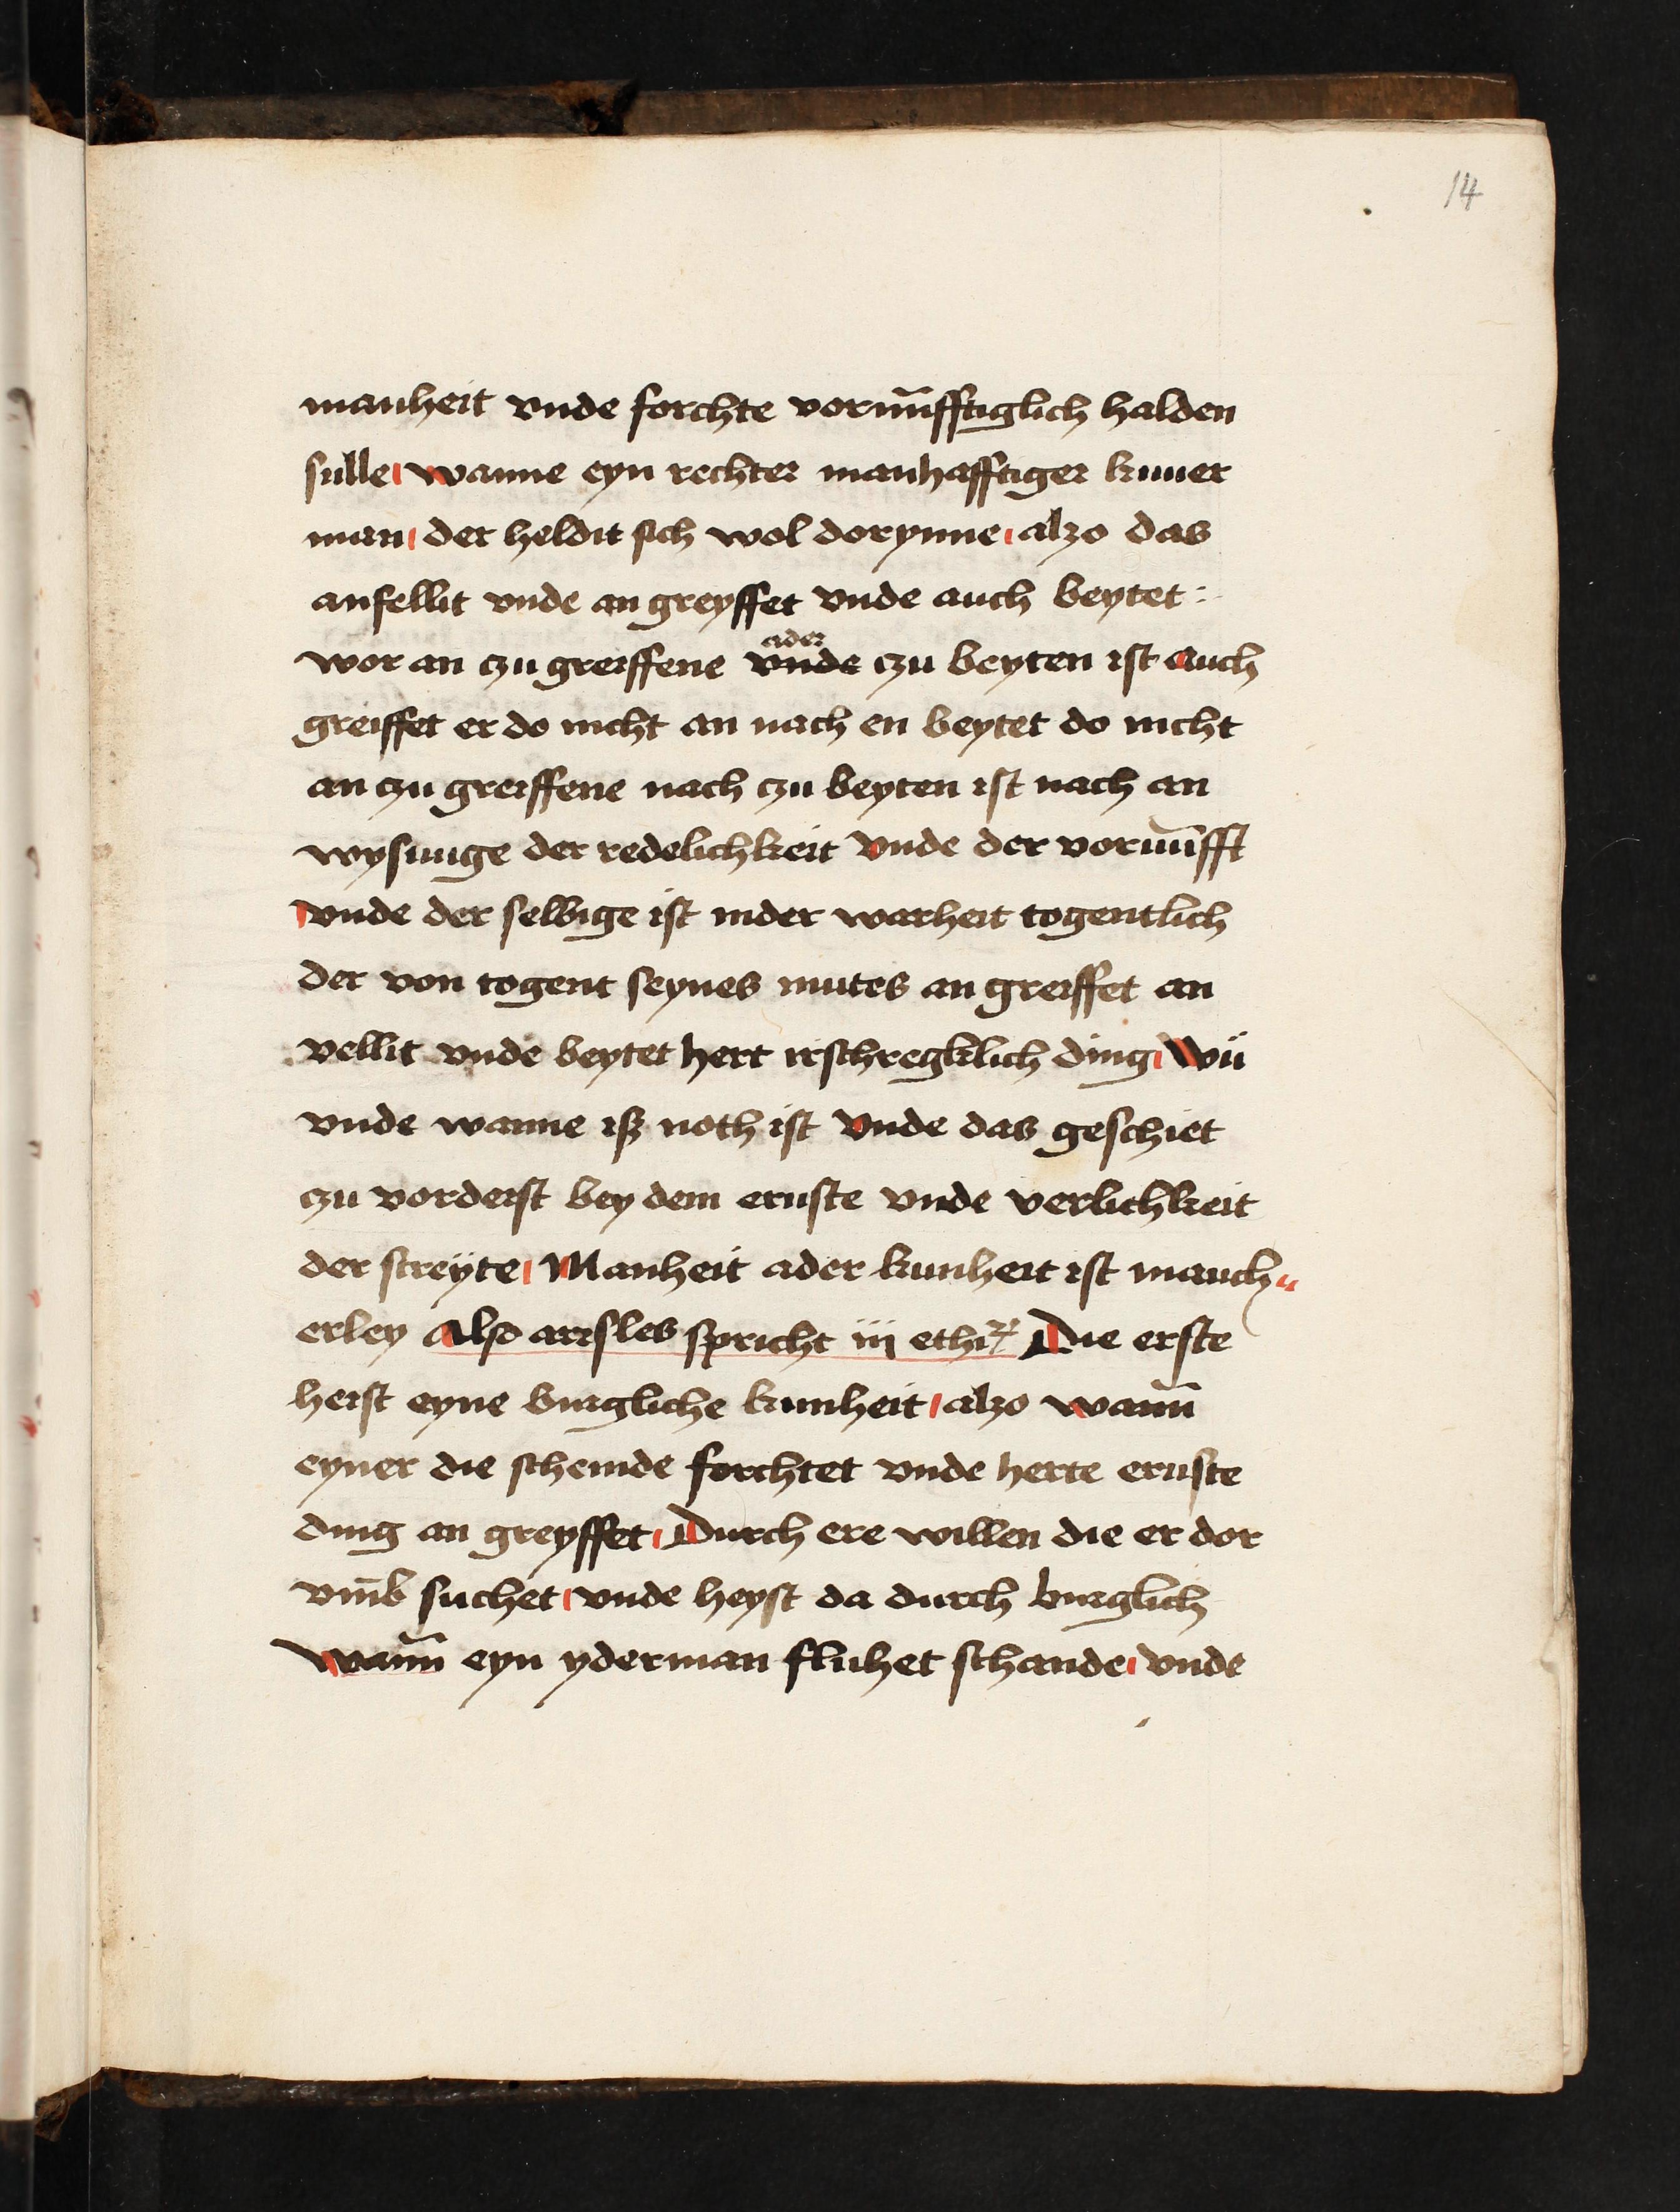 14
manheit vnde forchte vornu̅fftiglich halden
sulle wanne eyn rechter manhafftiger kuner
man der heldit sich wol dorynne alzo das
anfellit vnde an greyffet vnde auch beytet :
ader
wor an czu greiffene vnde czu beyten ist auch
greiffet er do nicht an nach en beytet do nicht
an czu greiffene nach czu beyten ist nach an
wysunge der redelichkeit vnde der vornu̅fft
vnde der selbige ist inder warheit togentlich
der von togent seynes mutes an greiffet an
vellit vnde beytet hert irschregklich ding Wü
vnde wanne isz noth ist vnde das geschiet
czu vorderst bey dem ernste vnde verlichkeit
der streÿte Manheit ader kunheit ist manch„
erley Also arisles spricht iij ethiꝝ Die erste
heist eyne burgliche kunheit alzo wann̅
eyner die schemde forchtet vnde herte ernste
ding an greyffet Durch ere willen die er dor
vm̅b suchet vnde heyst da durch burglich
wann̅ eyn yderman fluhet schande vnde